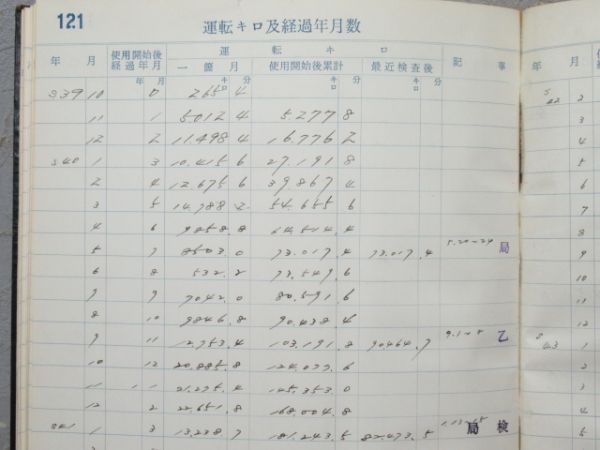 121
運転キロ及経過年月数
年 月 使用開始後経過年月 運転キロ 記事
年 月 一箇月 キロ 分 使用開始後累計 キロ 分 最近検査後 キロ 分
S39 10 0 265 4
11 1 5.012 4 5.277 8
12 2 11.498 4 16.776 2
S40 1 3 10.415 6 27.191 8
2 4 12.675 6 39.867 4
3 5 14.788 2 54.655 6
4 6 9858 8 64.514 4
5 7 8503 0 73.017 4 73.017 4 5.20~24 局
6 8 532 2 73.549 6
7 9 7042 0 80.591 6
8 10 9846 8 90.438 4
9 11 12.753 4 103.191 8 90464 7 9.1~5 乙
10 12 20.885 8 124.077 6
11 1 1 21.275 4 145.353 0
12 2 22.651 8 168.004 8
S41 1 3 13.238 7 181.243 5 82.473 5 局検
2
年 月
S42 2
3
4
5
6
7
8
9
10
11
12
S43 1
2
3
4
5